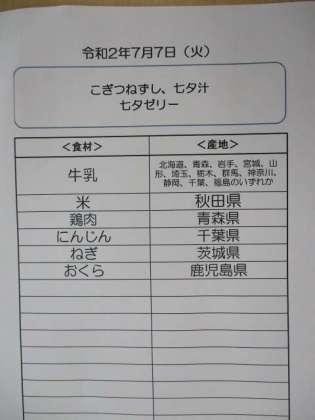 令和2年7月7日（火）
こぎつねずし、七夕汁
七夕ゼリー
＜食材＞ ＜産地＞
牛乳 北海道、青森、岩手、宮城、山
形、埼玉、栃木、群馬、神奈川、
静岡、千葉、福島のいずれか
米 秋田県
鶏肉 青森県
にんじん 千葉県
ねぎ 茨城県
おくら 鹿児島県